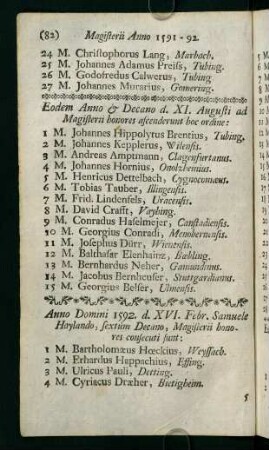 (82) Magisterii Anno 1591-92.
24 M. Christophorus Lang, Marbach.
25 M. Johannes Adamus Preiss, Tubing.
26 M. Godofredus Calwerus, Tubing.
27 M. Johannes Murarius, Gomering.
Eodem Anno & Decano d. XI. Augusti ad
Magisterii honores ascenderunt hoc ordine:
1 M. Johannes Hippolyrus Brentius, Tubing.
2 M. Johannes Kepplerus, Wilensis.
3 M. Andreas Amptmann, Clagenfurtanus.
4 M. Johannes Hornius, Onolzhemius.
5 M. Henricus Dettelbach, Cygnocomæus.
6 M. Tobias Tauber, Illingensis.
7 M. Frid. Lindenfels, Uracensis.
8 M. David Crafft, Vayhing.
9 M. Conradus Haselmejer, Canstadiensis.
10 M. Georgius Conradi,
11 M. Josephus Dürr,
12 M. Balthasar Elenhainz, Bœbling.
13 M. Bernhardus Neher, Gamundinus.
14 M. Jacobus Bernheuser, Stutgardianus.
15 M. Georgius Belser, Ulmensis.
Anno Domini 1592. d. XVI. Febr. Samuele
Haylando, sextum Decano, Magisterii hono-
res consecuti sunt:
1 M. Bartholomæus Hœckius, Weyssach.
2 M. Erhardus Happachius, Essing.
3 M. Ulricus Pauli, Detting.
4 M. Cyriacus Dræher, Butigheim.
5